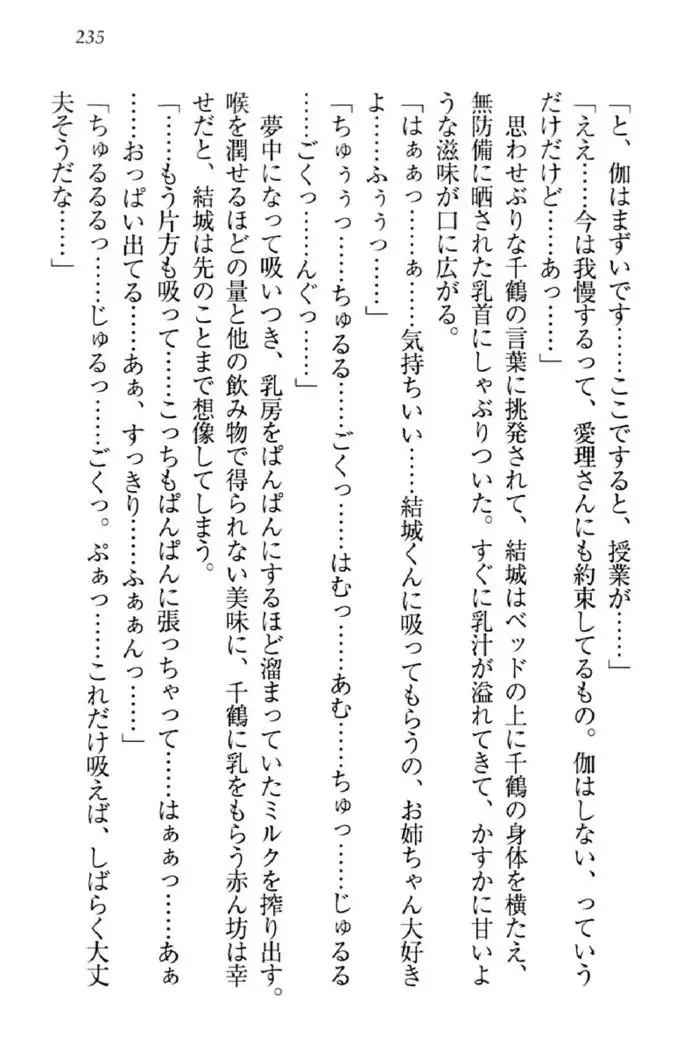 235
「と、伽はまずいです……ここですると、授業が……」
「ええ……今は我慢するって、愛理さんにも約束してるもの。伽はしない、っていう
だけだけど……あっ……」
思わせぶりな千鶴の言葉に挑発されて、結城はベッドの上に千鶴の身体を横たえ、
無防備に晒された乳首にしゃぶりついた。すぐに乳汁が溢れてきて、かすかに甘いよ
うな滋味が口に広がる。
「はぁぁっ……ぁ……気持ちいい……結城くんに吸ってもらうの、お姉ちゃん大好き
よ……ふぅぅっ……」
「ちゅぅぅっ……ちゅるる……ごくっ……はむっ……あむ……ちゅっ……じゅるる
……ごくっ……んぐっ……」
夢中になって吸いつき、乳房をぱんぱんにするほど溜まっていたミルクを搾り出す。
喉を潤せるほどの量と他の飲み物で得られない美味に、千鶴に乳をもらう赤ん坊は幸
せだと、結城は先のことまで想像してしまう。
「……もう片方も吸って……こっちもぱんぱんに張っちゃって……はぁぁっ……あぁ
……おっぱい出てる……あぁ、すっきり……ふぁぁんっ……」
「ちゅるるるっ……じゅるっ……ごくっ。ぷぁっ……これだけ吸えば、しばらく大丈
夫そうだな……」